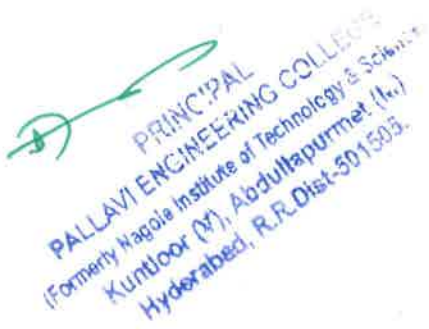 PRINCIPAL
PALLAVI ENGINEERING COLLEGE
(Formerly Nagole Institute of Technology & Science
Kuntloor (V), Abdullapurmet (M.)
Hyderabad, R.R.Dist-501505.